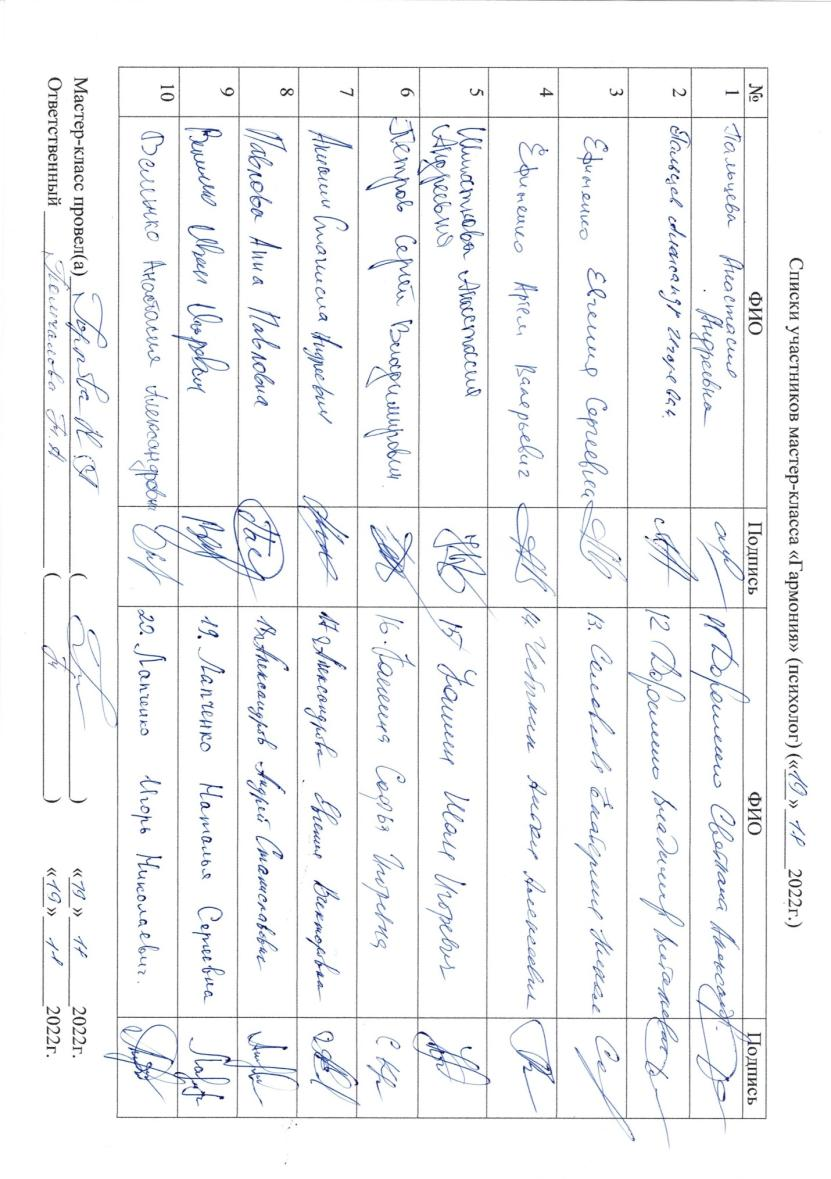 Списки участников мастер-класса «Гармония» (психолог) («19» 12 2022г.)
№ ФИО Подпись ФИО Подпись
1 Пальцева Анастасия Андреевна 11 Дорошенко Светлана Александр.
2 Пальцев Александр Игоревич 12 Дорошенко Владимир Витальевич
3 Ефименко Евгения Сергеевна 13. Екатерина
4 Ефименко Артём Валерьевич 14. Алексеевич
5 Анастасия Андреевна 15 Игоревич
6 Петров Сергей Владимирович 16. Софья Игоревна
7 Андреевич 17 Александрова Евгения Викторовна
8 Павлова Анна Павловна 18 Александров Андрей Станиславович
9 Иван 19. Лапченко Наталья Сергеевна
10 Анастасия Александровна 20. Лапченко Игорь Николаевич.
Мастер-класс провел(а) ( ) «19» 12 2022г.
Ответственный ( ) «19» 12 2022г.